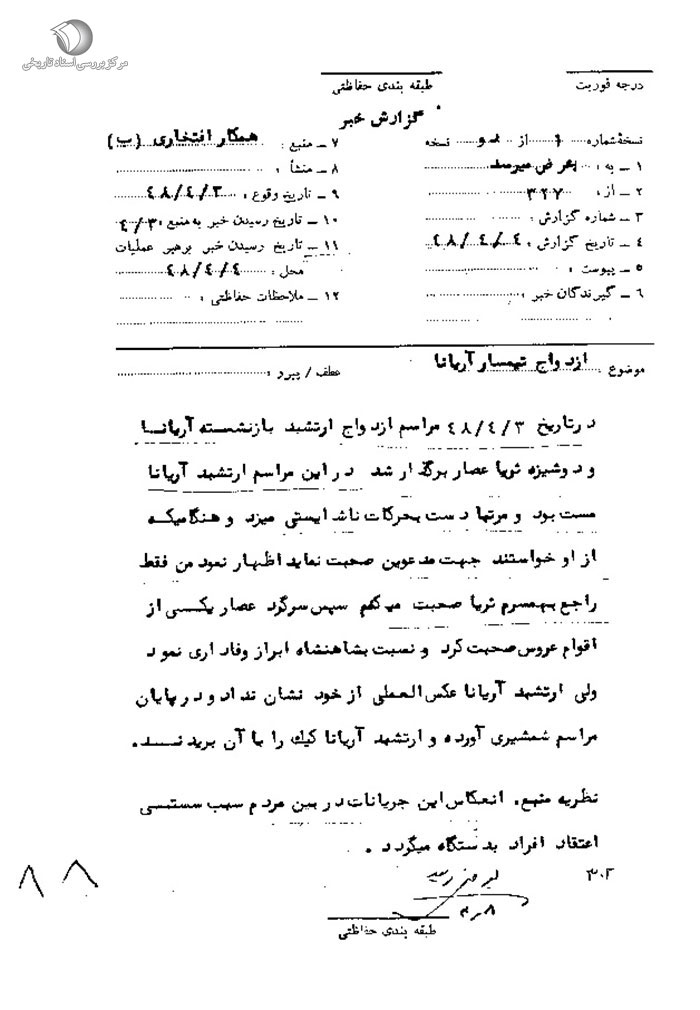 مرکز بررسی اسناد تاریخی
درجه فوریت
طبقه بندی حفاظتی
گزارش خبر
نسخهٔ شماره ۱ از دو نسخه
۱ ـ به : بعرض میرسد
۲ ـ از : ۳۲۷
۳ ـ شماره گزارش :
۴ ـ تاریخ گزارش : ۴۸/۴/۴
۵ ـ پیوست :
۶ ـ گیرندگان خبر :
۷ ـ منبع : همکار افتخاری (ب)
۸ ـ منشأ :
۹ ـ تاریخ وقوع : ۴۸/۴/۳
۱۰ ـ تاریخ رسیدن خبر به منبع : ۴/۳
۱۱ ـ تاریخ رسیدن خبر برهبر عملیات
محل : ۴۸/۴/۴
۱۲ ـ ملاحظات حفاظتی :
موضوع : ازدواج تیمسار آریانا
عطف / پیرو :
درتاریخ ۴۸/۴/۳ مراسم ازدواج ارتشبد بازنشسته آریانا
و دوشیزه ثریا عصار برگذار شد در این مراسم ارتشبد آریانا
مست بود و مرتبا دست بحرکات ناشایستی میزد و هنگامیکه
از او خواستند جهت مدعوین صحبت نماید اظهار نمود من فقط
راجع بهمسرم ثریا صحبت میکنم سپس سرگرد عصار یکی از
اقوام عروس صحبت کرد و نسبت بشاهنشاه ابراز وفاداری نمود
ولی ارتشبد آریانا عکس العملی از خود نشان نداد و در پایان
مراسم شمشیری آورده و ارتشبد آریانا کیک را با آن بریدند.
نظریه منبع. انعکاس این جریانات در بین مردم سبب سستی
اعتقاد افراد بدستگاه میگردد .
۳۰۲
۴٫۸
طبقه بندی حفاظتی
۸ ۸